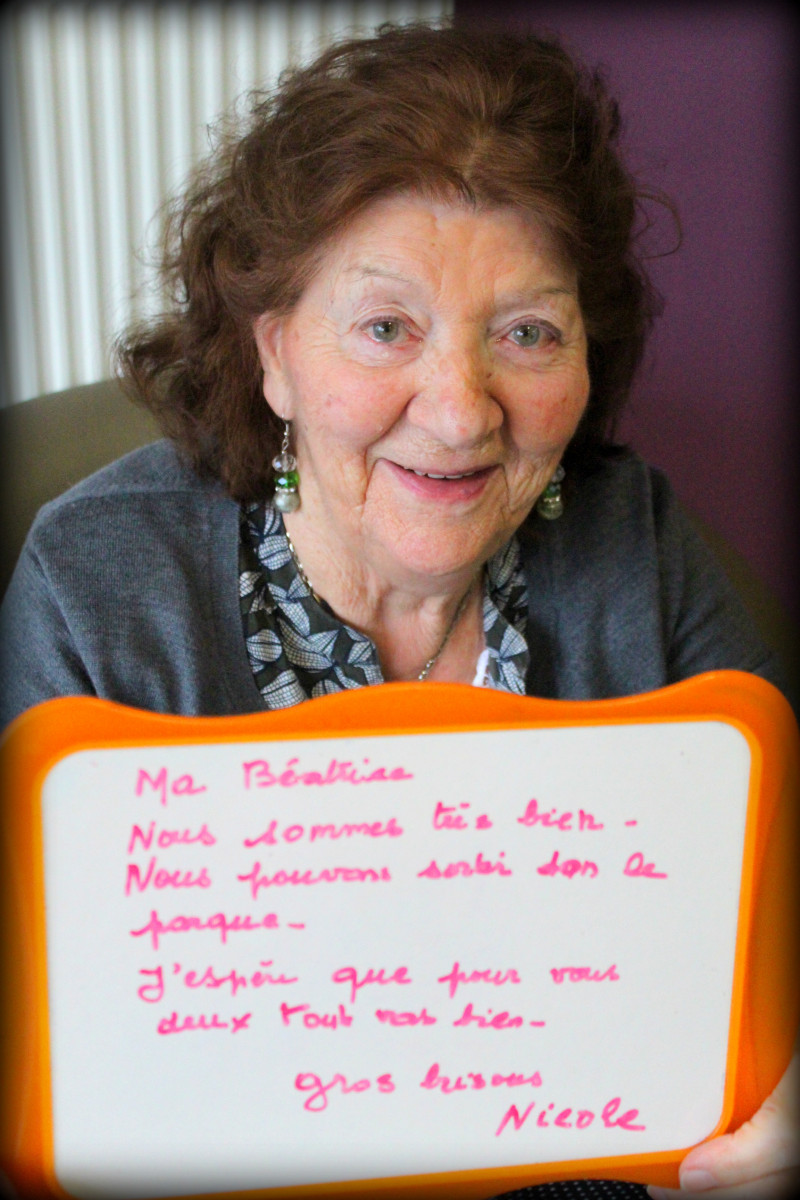 Ma Béatrice
Nous sommes très bien -
Nous pouvons sortir dans le
parque -
J'espère que pour vous
deux tout vas bien -
gros bisous
Nicole